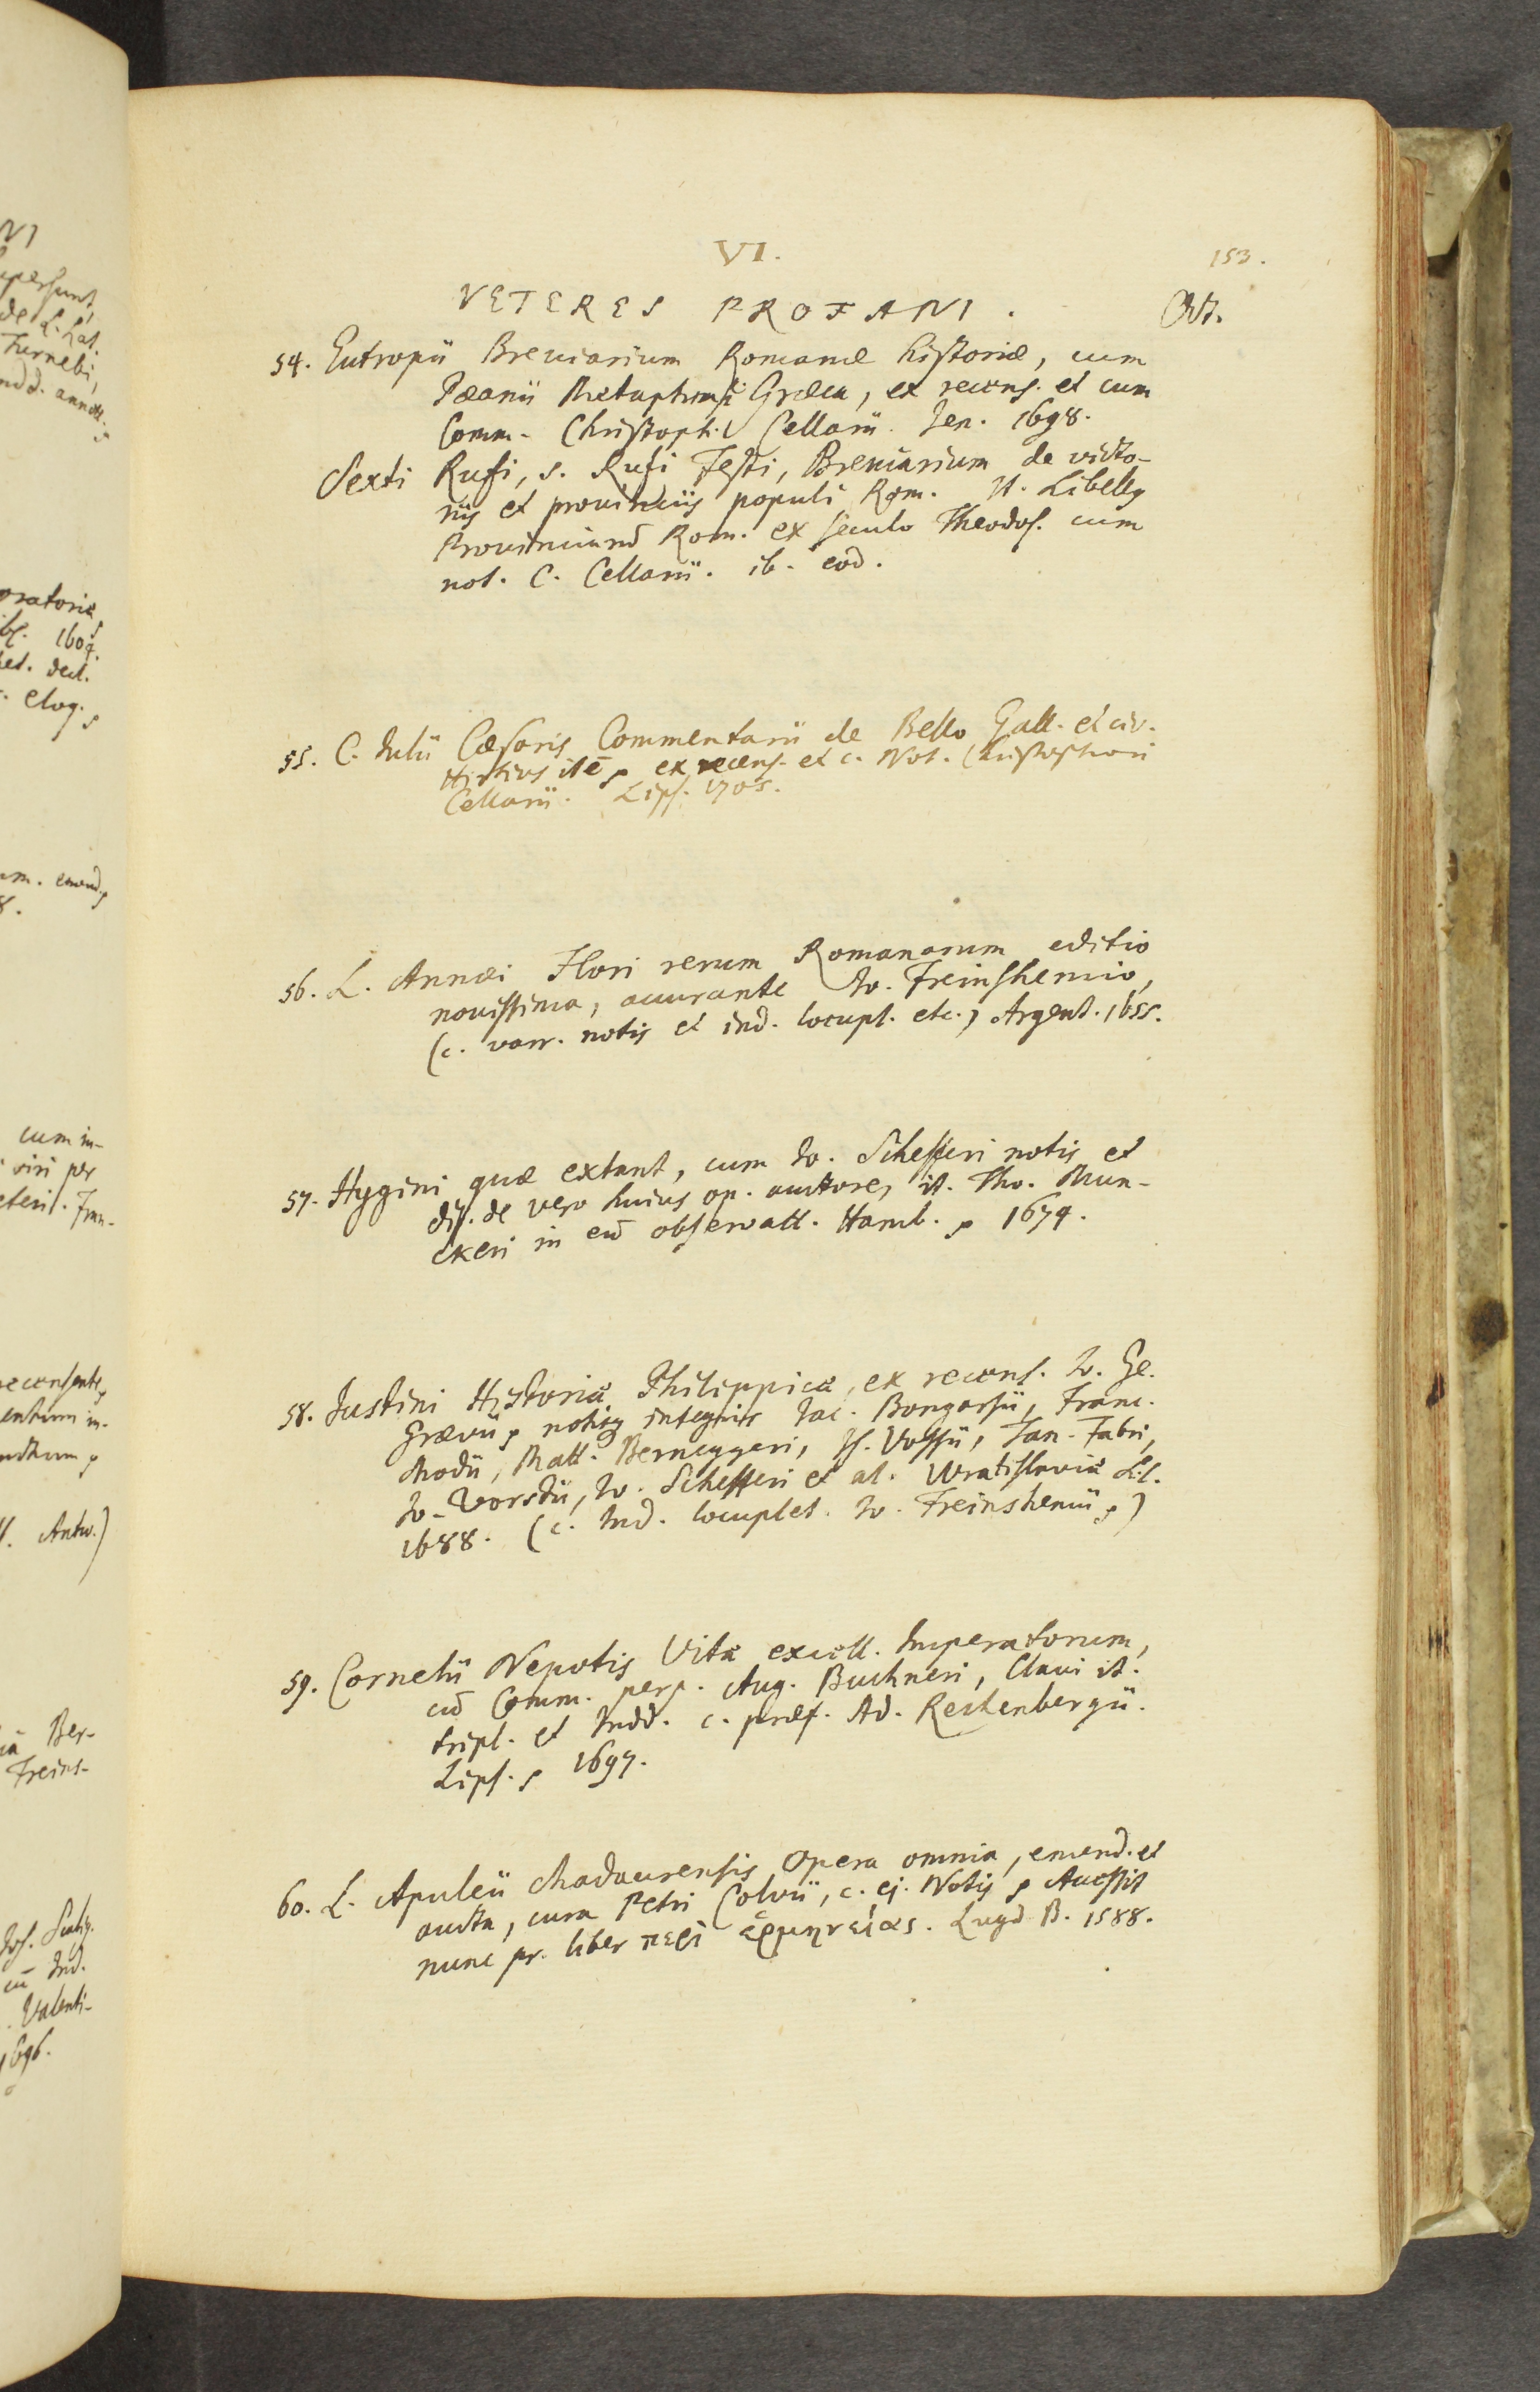 VI.
153.
VETERES PROFANI.
Oct.
54. Eutropii Breuiarium Romanæ historiæ, cum
Pæanii Metaphrasi Græca, ex recens. et cum
Comm. Christoph. Cellarii. Jen. 1698.
Sexti Rufi, s. Rufi Festi, Breuiarium de victo-
riis et prouinciis populi Rom. It. Libellg
Prouinciarū Rom. ex seculo Theodos. cum
not. C. Cellarii. ib. eod.
55. C. Julii Cæsaris Commentarii de Bello Gall. et civ.
Hirtius itē ex recens. et c. Not. Christophori
Cellarii. Lips. 1705.
56. L. Annæi Flori rerum Romanarum editio
nouissima, accurante Jo. Freinshemio,
(c. varr. notis et ind. locupl. etc.) Argent. 1655.
57. Hygini quæ extant, cum Jo. Schefferi notis et
diss. de vero huius op. auctore, it. Tho. Mun-
ckeri in eū obseruatt. Hamb. 1674.
58. Justini Historiæ Philippicæ, ex recens. Jo. Ge.
Grævii notisq integris Jac. Bongarsii, Franc.
Modii, Matt. Berneggeri, Is. Vossii, Tan. Fabri,
Jo. Vorstii, Jo. Schefferi et al. Wratislaviæ Lif.
1688. (c. Ind. locuplet. Jo. Freinshemii)
59. Cornelii Nepotis Vitæ excell. Imperatorum,
cū Comm. perp. Aug. Buchneri, Claui it.
tripl. et Indd. c. præf. Ad. Rechenbergii.
Lips. 1697.
60. L. Apuleii Madaurensis Opera omnia, emend. et
aucta, cura Petri Colvii, c. ej. Notis Accessit
nunc pr. liber περὶ ἑρμηνείας. Lugd B. 1588.